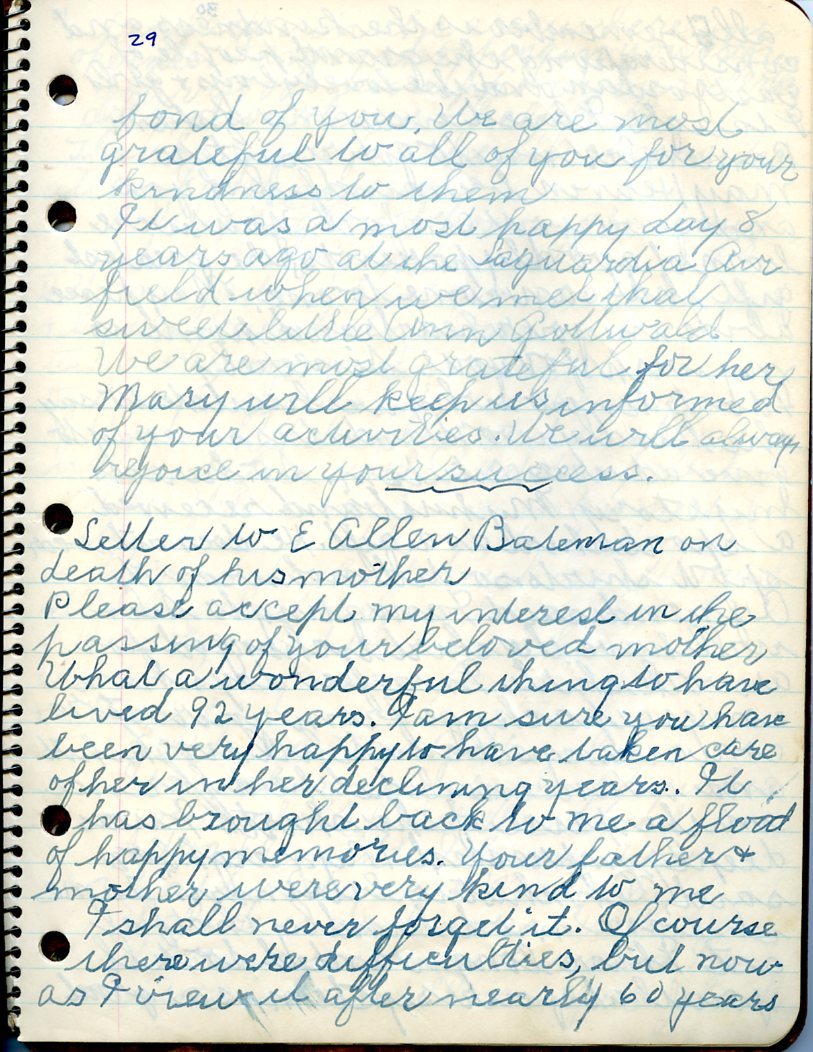 29
fond of you. We are most
grateful to all of you for your
kindness to them
It was a most happy day 8
years ago at the Laguardia Air
field when we met that
sweet little Ann Gottwald
We are most grateful for her
Mary will keep us informed
of your activities. We will always
rejoice in your success.
Letter to E Allen Bateman on
death of his mother
Please accept my interest in the
passing of your beloved mother
What a wonderful thing to have
lived 92 years. I am sure you have
been very happy to have taken care
of her in her declining years. It
has brought back to me a flood
of happy memories. Your father &
mother were very kind to me
I shall never forget it. Of course
there were difficulties, but now
as I view it after nearly 60 years